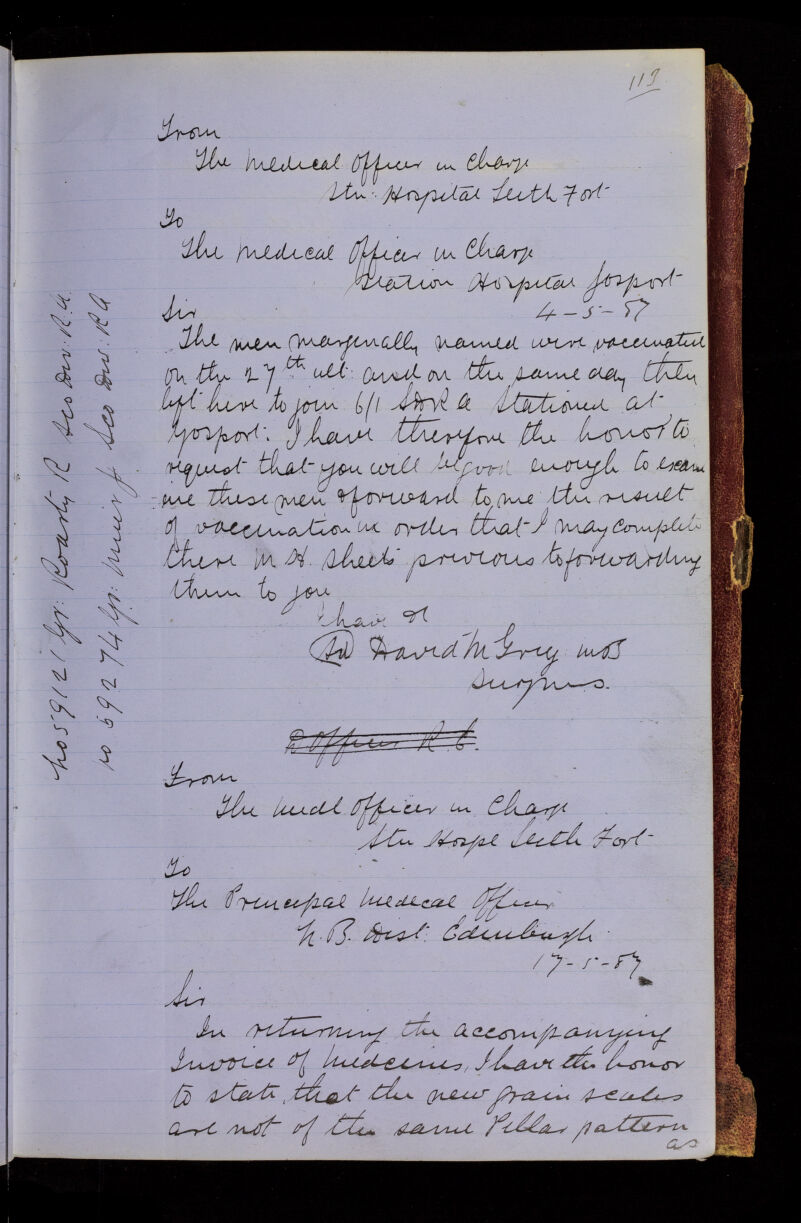 113
From
The Medical Officer in Charge
Stn: Hospital Leith Fort
To
The Medical Officer in Charge
Station Hospital Gosport
4-5-87
Sir
The men marginally named were vaccinated
on the 27th ult and on the same day then
left here to join 6/1 S D R A Stationed at
Gosport. I have therefore the honor to
request that you will be good enough to exam
ine these men & forward to me the result
of vaccination in order that I may complete
there M. H. Sheets previous to forwarding
them to you
I have &
(Sd) David M Grey MB
Surgn M.S.
No 59121 Gr: Roarty R Sco Div: R.A.
No 59274 Gr: Muir J Sco Div: RA
Officer R. E.
From
The Medl Officer in Charge
Stn Hospl Leith Fort
To
The Principal Medical Officer
N. B. Dist: Edinburgh
17-5-87
Sir
In returning the accompanying
Invoice of Medcines, I have the honor
to state, that the new grain scales
are not of the same Pillar pattern
as